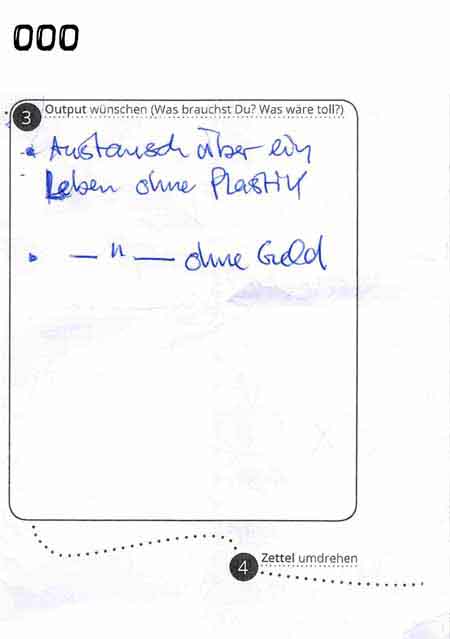 000
3 Output wünschen (Was brauchst Du? Was wäre toll?)
• Austausch über ein
Leben ohne Plastik
• — " — ohne Geld
4 Zettel umdrehen